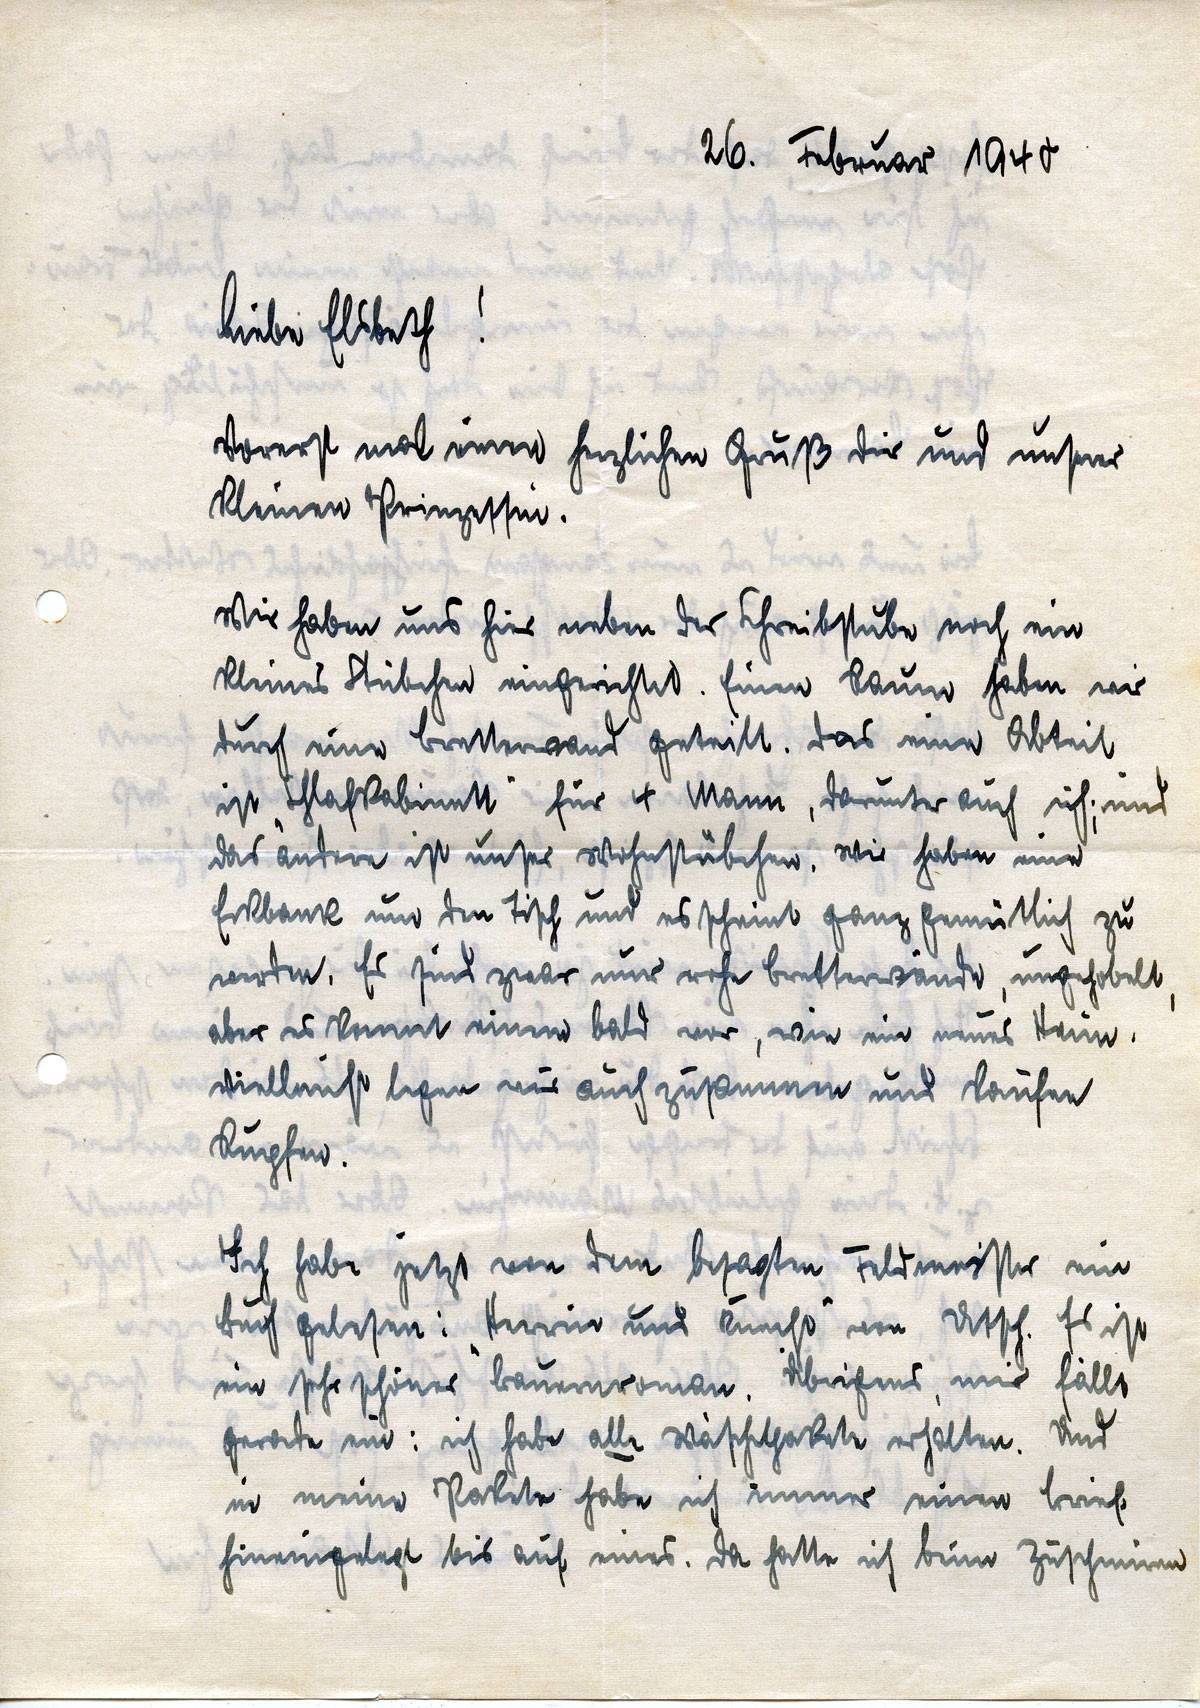 26. Februar 1940
Liebe Elsbeth !
Vorerst mal einen herzlichen Gruß dir und unserer
kleinen Prinzessin.
Wir haben uns hier neben der Schreibstube noch ein
kleines Stübchen eingerichtet. Einen Raum haben wir
durch eine Bretterwand geteilt. Das eine Abteil
ist „Schlafkabinett“ für 4 Mann, darunter auch ich; und
das andere ist unser Wohnstübchen. Wir haben eine
Eckbank um den Tisch und es scheint ganz gemütlich zu
werden. Es sind zwar nur rohe Bretterwände, ungehobelt,
aber es kommt einem bald vor, wie ein neues Heim.
Vielleicht legen wir auch zusammen und kaufen
Rupfen.
Ich habe jetzt von dem besagten Feldmeister ein
Buch gelesen: „Herrin und Knecht“ von Utsch. Es ist
ein sehr schöner Bauernroman. Übrigens, mir fällt
gerade ein: ich habe alle Wäschepakete erhalten. Und
in meine Pakete habe ich immer einen Brief
hineingelegt bis auf eines. Da hatte ich beim Zuschnüren